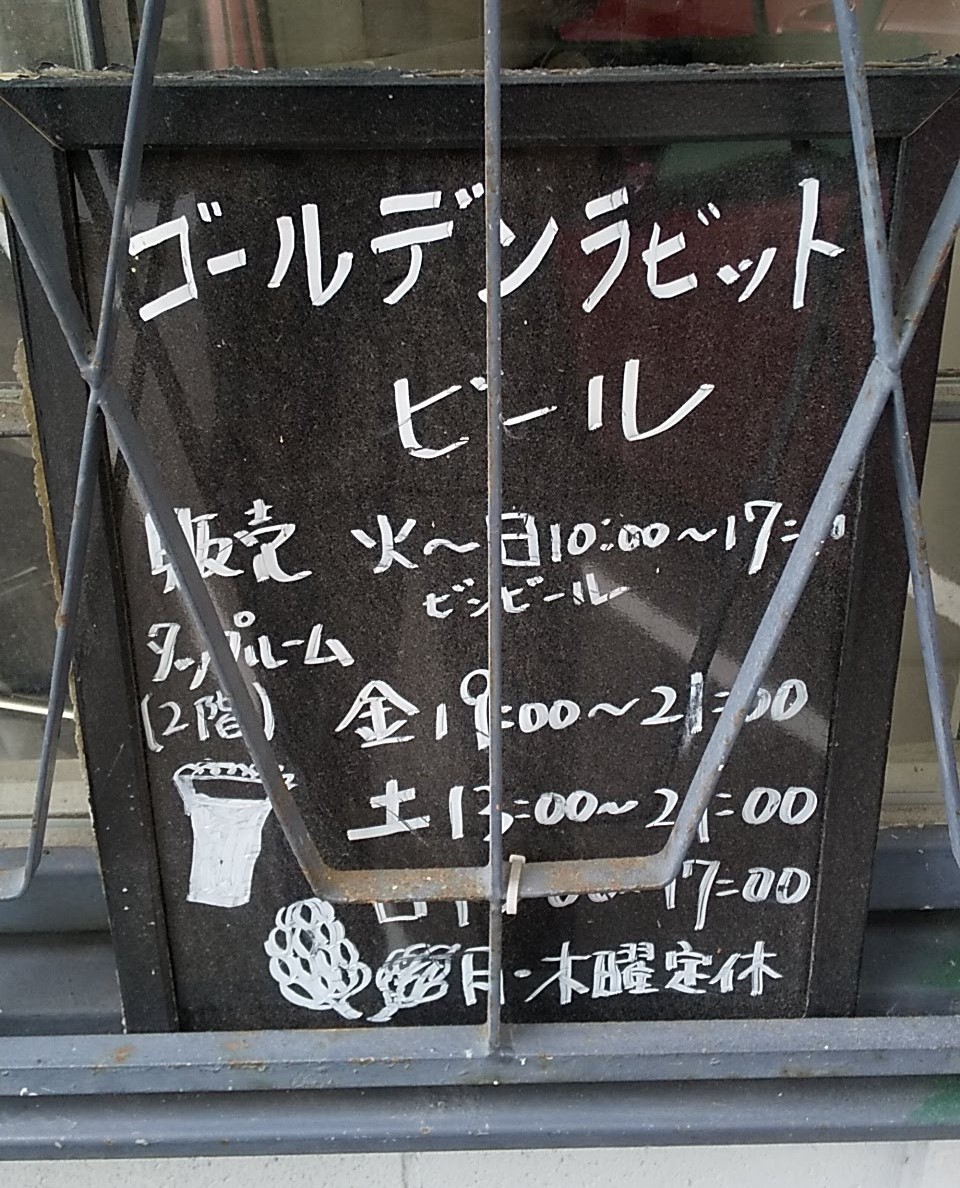 ゴールデンラビット
ビール
販売 火~日10:00~17:00
ビンビール
タップルーム
(2階) 金19:00~21:00
土13:00~21:00
日 17:00
月-木曜定休